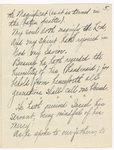 My soul doth magnify the Lord
and my spirit hath rejoiced in
God my Savior.
Because he hath regarded the
humility of his handmaid; for
behold from henceforth all
generations shall call me blessed
He hath received Israel his
servant, being mindful of his
mercy
As he spoke to our fathers, to